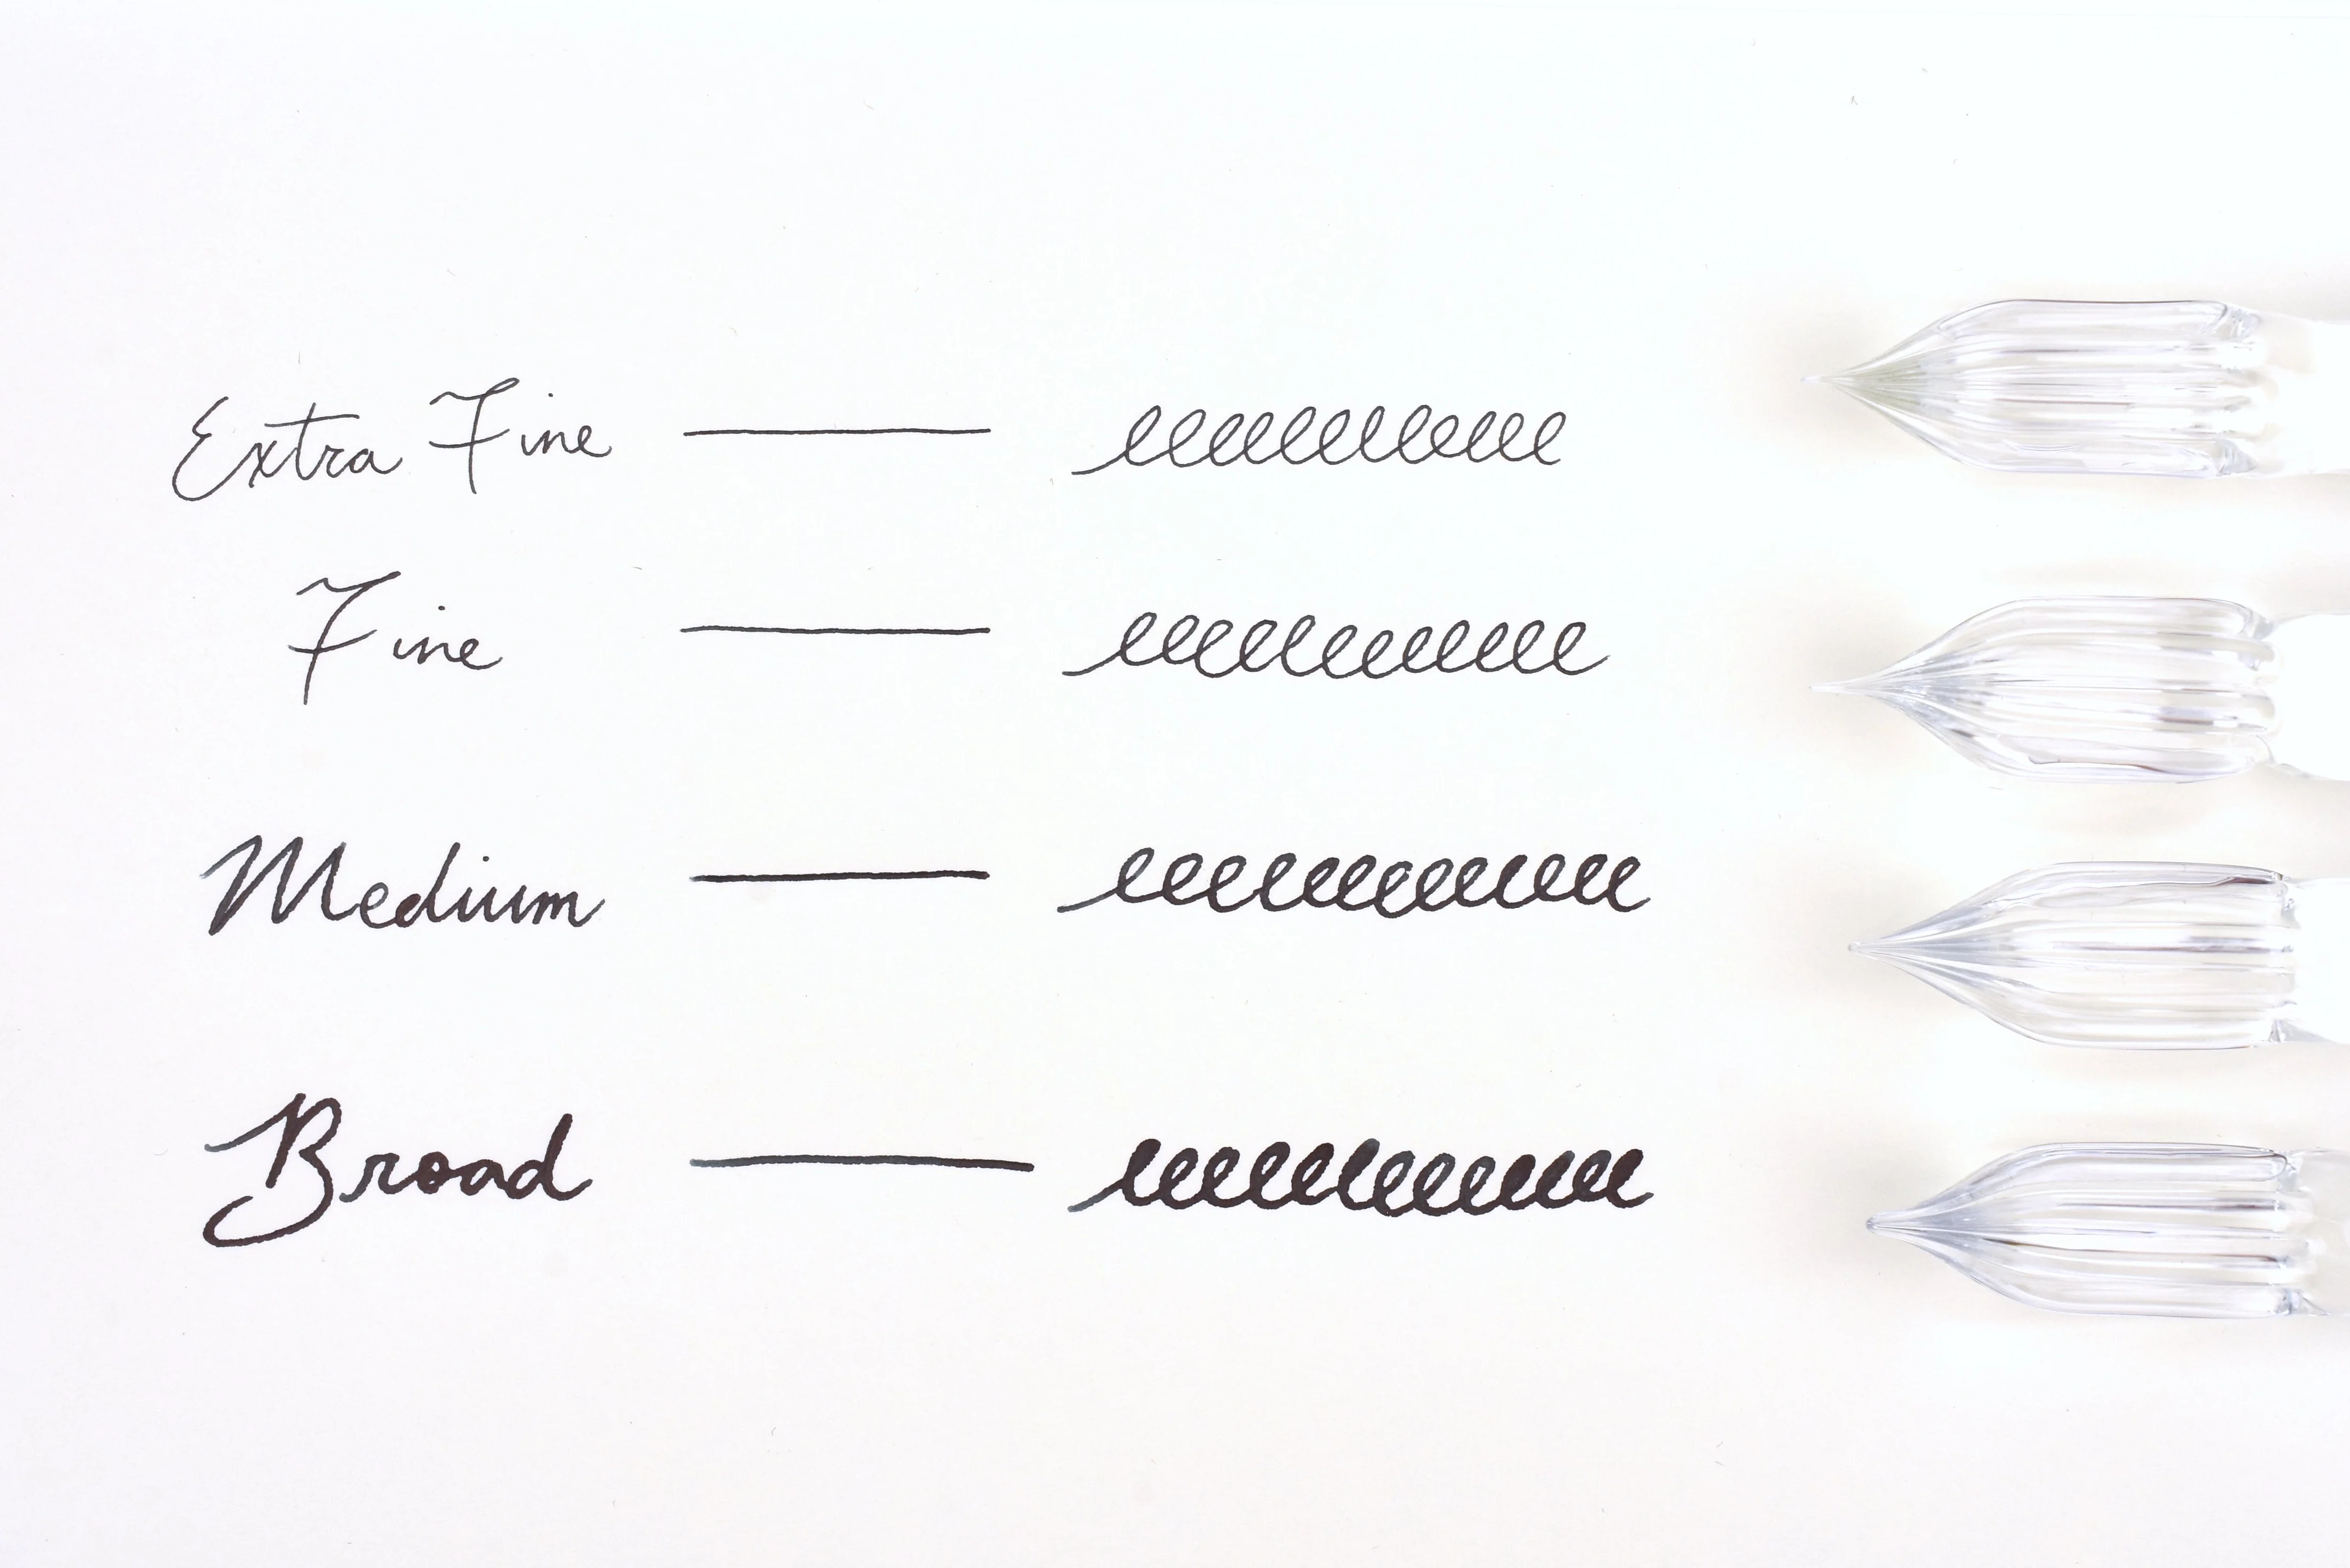 Extra Fine
Fine
Medium
Broad